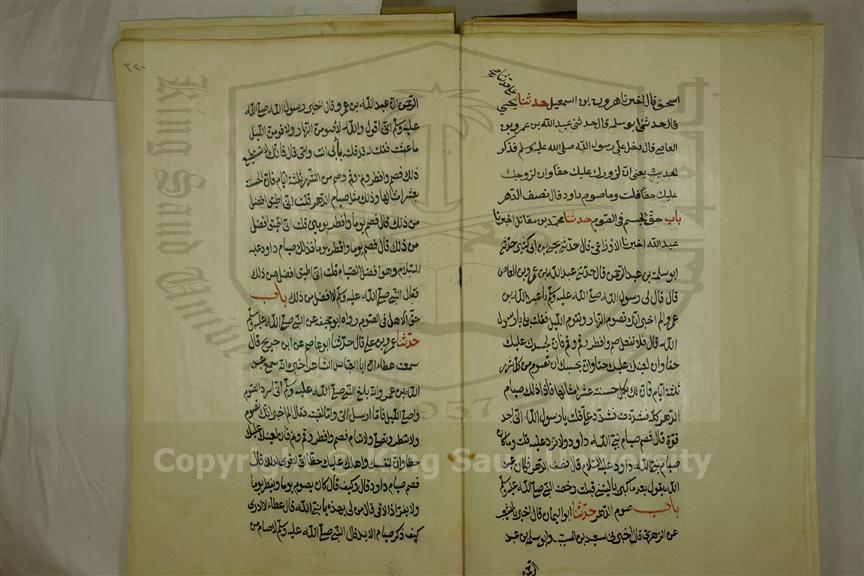 اسحق قال اخبرنا هرون بن اسمعيل حدثنا يحيى
قال حدثني ابو سلمة قال حدثني عبد الله بن عمرو بن
العاصي قال دخل علي رسول الله صلى الله عليه وسلم فذكر
الحديث يعني ان لزورك عليك حقا وان لزوجك
عليك حقا قلت وما صوم داود قال نصف الدهر
باب حق الجسم في الصوم حدثنا محمد بن مقاتل اخبرنا
عبد الله اخبرنا الاوزاعي قال حدثني يحيى بن ابي كثير حدثني
ابو سلمة بن عبد الرحمن قال حدثني عبد الله بن عمرو بن العاص
قال قال لي رسول الله صلى الله عليه وسلم يا عبد الله بن
عمرو الم اخبر انك تصوم النهار وتقوم الليل فقلت بلى يا رسول
الله قال فلا تفعل صم وافطر وقم ونم فان لجسدك عليك
حقا وان لعينك عليك حقا وان بحسبك ان تصوم من كل شهر
ثلثة ايام فان لك بكل حسنة عشر امثالها فاذا ذلك صيام
الدهر كله فشددت فشدد علي قلت يا رسول الله اني اجد
قوة قال فصم صيام نبي الله داود ولا تزد عليه قلت وما كان
صيام نبي الله داود عليه السلام قال نصف الدهر فكان عبد
الله يقول بعد ما كبر يا ليتني قبلت رخصة النبي صلى الله عليه وسلم
باب صوم الدهر حدثنا ابو اليمان قال اخبرنا شعيب
عن الزهري قال اخبرني سعيد بن المسيب وابو سلمة بن عبد
٣٢٠
الرحمن ان عبد الله بن عمرو قال اخبر رسول الله صلى الله
عليه وسلم اني اقول والله لاصومن النهار ولاقومن الليل
ما عشت فقلت له قد قلته بابي انت وامي قال فانك لا تستطيع
ذلك فصم وافطر وقم ونم وصم من الشهر ثلثة ايام فان الحسنة
بعشر امثالها وذلك مثل صيام الدهر قلت اني اطيق افضل
من ذلك قال فصم يوما وافطر يومين قلت اني اطيق افضل
من ذلك قال فصم يوما وافطر يوما فذلك صيام داود عليه
السلام وهو افضل الصيام فقلت اني اطيق افضل من ذلك
فقال النبي صلى الله عليه وسلم لا افضل من ذلك باب
حق الاهل في الصوم رواه ابو جحيفة عن النبي صلى الله عليه وسلم
حدثنا عمرو بن علي قال حدثنا ابو عاصم عن ابن جريج قال
سمعت عطاء ان ابا العباس الشاعر اخبره انه سمع عبد
الله بن عمر وانه بلغ النبي صلى الله عليه وسلم اني اسرد الصوم
واصلي الليل فاما ارسل الي واما لقيته فقال الم اخبر انك تصوم
ولا تفطر وتصلي ولا تنام فصم وافطر وقم ونم فان لعينك عليك
حقا وان لنفسك واهلك عليك حقا قال اني لاقوى لذلك قال
فصم صيام داود قال وكيف قال كان يصوم يوما ويفطر يوما
ولا يفر اذا لاقى قال من لي بهذه يا نبي الله قال عطاء لا ادري
كيف ذكر صيام الابد قال النبي صلى الله عليه وسلم لا صام من
King Saud University
1957
Copyright © King Saud University